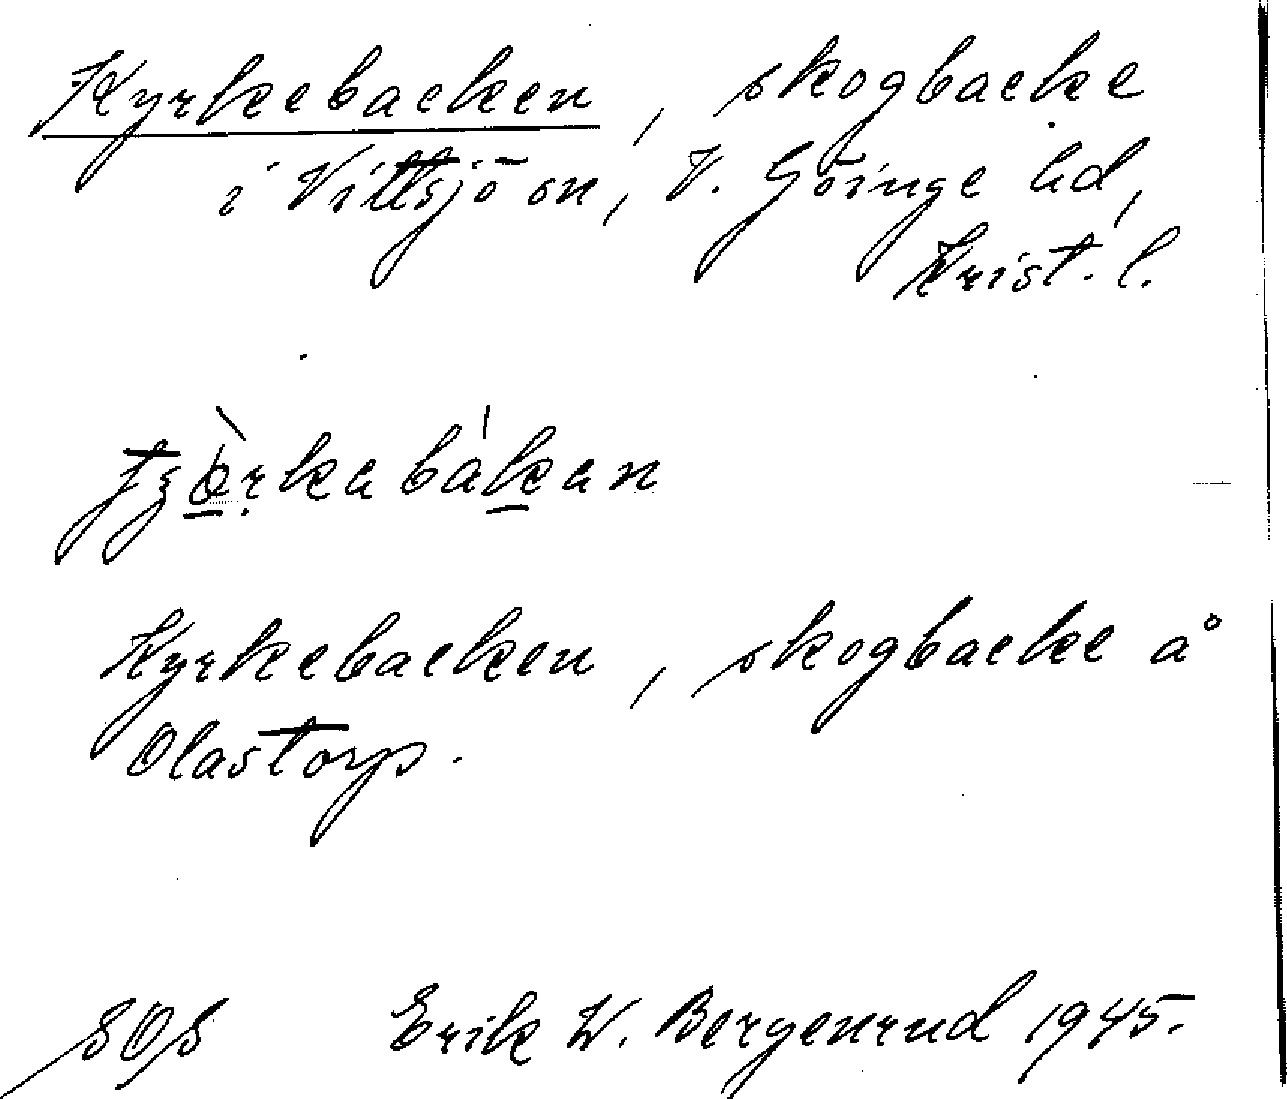 Kyrkebacken, skogbacke
i Vittsjö sn, V. Göinge hd,
Krist. l.
Kyrkebacken, skogbacke å
Olastorp.
SOS Erik W. Bergenrud 1945.